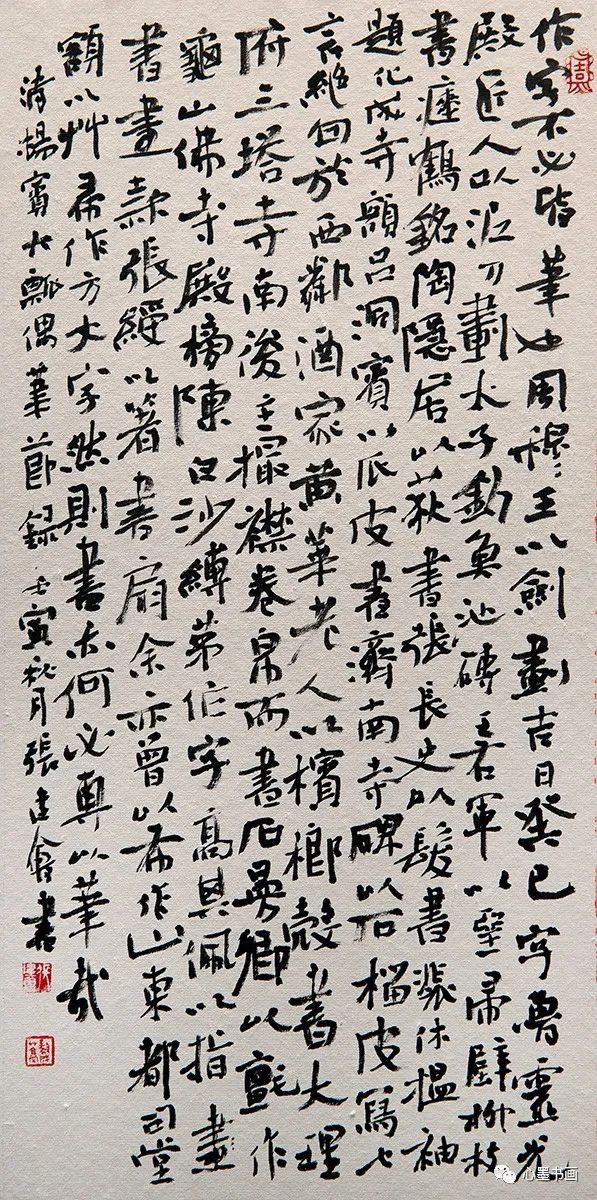 作字不必皆筆也周穆王以劍劃吉日癸巳字魯靈光
殿匠人以泥刀劃太子釣魚池磚王右軍以堊帚壁柳枝
書瘞鶴銘陶隱居以荻書張長史以髮書裴休揾袖
題化成寺額呂洞賓以瓜皮畫濟南寺碑以石榴皮寫七
言絕句於西鄰酒家黃華老人以檳榔殼書大理
府三塔寺南後主撮襟卷帛而書石曼卿以氈作
龜山佛寺殿榜陳白沙縛茅作字高其佩以指畫
書畫款張綬以箸書扇余亦曾以布作山東都司堂
額以艸帚作方大字然則書亦何必專以筆哉
清楊賓大瓢偶筆節錄壬寅秋月張建會書
心墨书画